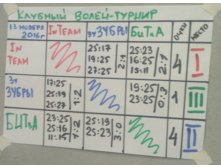 Клубный Волей-турнир
13 ноября 2016г InTeam Зу ЗУБРЫ БитА очки место
In Team 25:17 19:25 27:25 2:1 25:23 16:25 15:11 2:1 4 I
Зу ЗУБРЫ 17:25 25:19 25:27 1:2 19:25 23:25 0:3 1 III
БитА 23:25 25:16 11:15 1:2 25:19 25:23 3:0 4 II